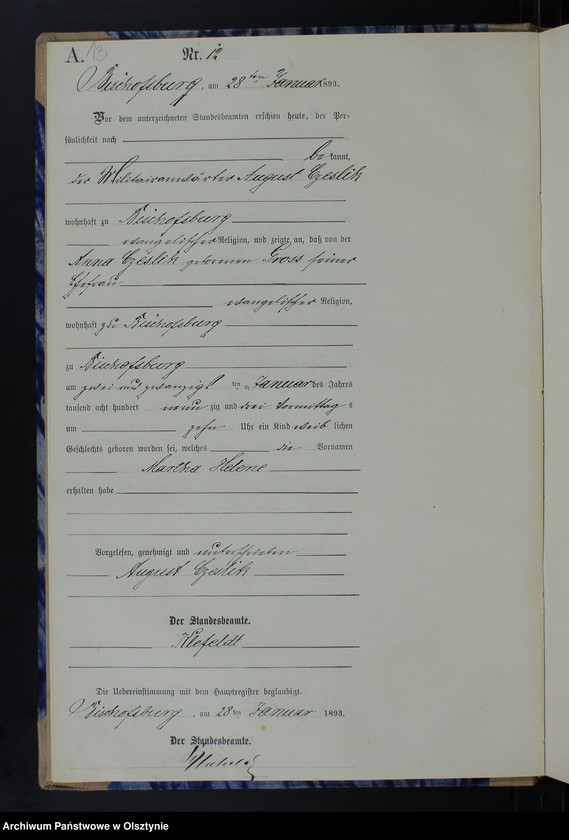 A. 13 Nr. 12
Bischofsburg, am 28ten Januar 1893.
Vor dem unterzeichneten Standesbeamten erschien heute, der Per-
sönlichkeit nach
be kannt,
der Militairanwärter August Czeslik
wohnhaft zu Bischofsburg
evangelischer Religion, und zeigte an, daß von der
Anna Czeslik geborenen Gross seiner
Ehefrau
evangelischer Religion,
wohnhaft zu Bischofsburg
zu Bischofsburg
am zwei und zwanzigsten Januar des Jahres
tausend acht hundert neun zig und drei Vormittags
um zehn Uhr ein Kind weib lichen
Geschlechts geboren worden sei, welches die Vornamen
Martha Helene
erhalten habe
Vorgelesen, genehmigt und unterschrieben
August Czeslik
Der Standesbeamte.
Klefeldt
Die Uebereinstimmung mit dem Hauptregister beglaubigt.
Bischofsburg, am 28ten Januar 1893.
Der Standesbeamte.
Archiwum Państwowe w Olsztynie